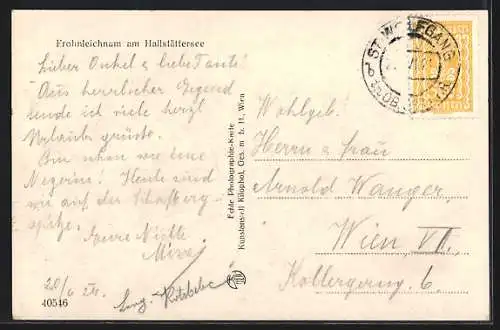 Frohnleichnam am Hallstättersee
Lieber Onkel & liebe Tante!
Aus herrlicher Gegend
sende ich viele herzl
Urlaubs grüsse.
Bin schon wie eine
Negerin! Heute sind
wir auf der Schafberg-
spitze.
Eure Nichte
Mizzi
20/6 24.
40546
Echte Photographie-Karte
Kunstanstalt Kilophot, Ges. m. b. H., Wien
ST. WOLFGANG
Wohlgeb.
Herrn & Frau
Arnold Wanger
Wien VII.
Kollergerng. 6